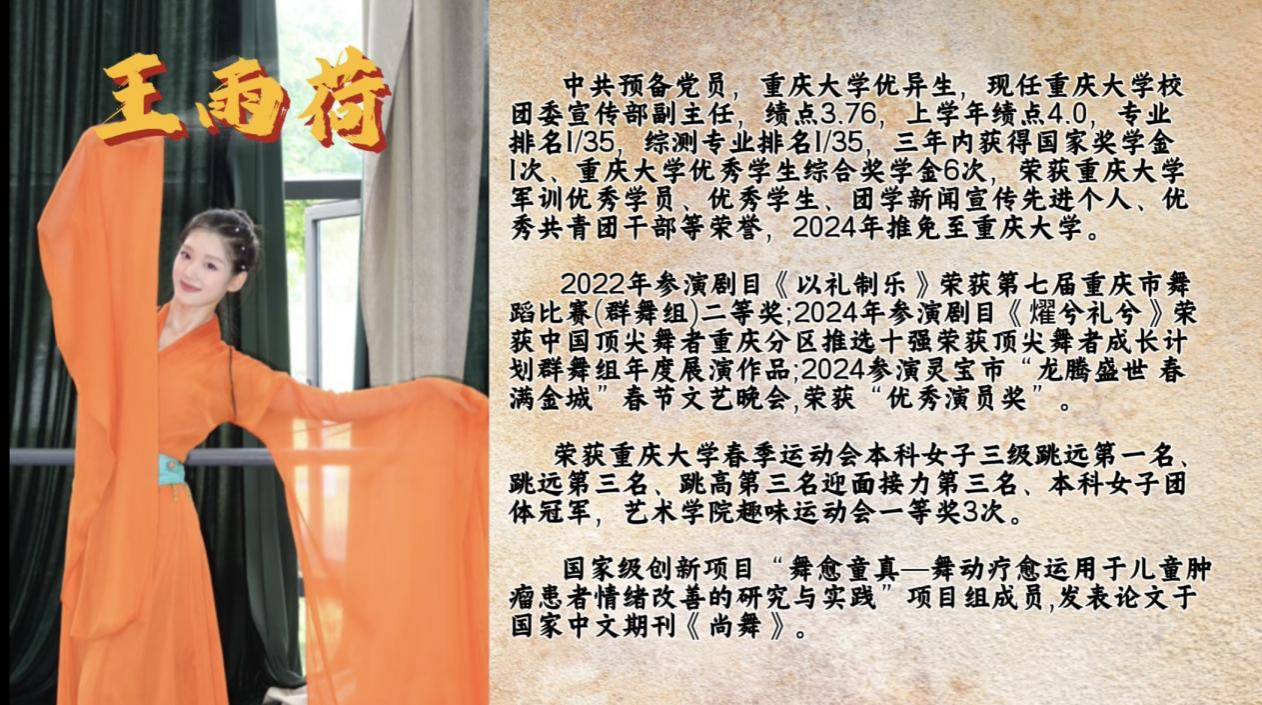 王雨荷
中共预备党员，重庆大学优异生，现任重庆大学校
团委宣传部副主任，绩点3.76，上学年绩点4.0，专业
排名1/35，综测专业排名1/35，三年内获得国家奖学金
1次、重庆大学优秀学生综合奖学金6次，荣获重庆大学
军训优秀学员、优秀学生、团学新闻宣传先进个人、优
秀共青团干部等荣誉，2024年推免至重庆大学。
2022年参演剧目《以礼制乐》荣获第七届重庆市舞
蹈比赛(群舞组)二等奖;2024年参演剧目《燿兮礼兮》荣
获中国顶尖舞者重庆分区推选十强荣获顶尖舞者成长计
划群舞组年度展演作品;2024参演灵宝市“龙腾盛世 春
满金城”春节文艺晚会,荣获“优秀演员奖”。
荣获重庆大学春季运动会本科女子三级跳远第一名、
跳远第三名、跳高第三名迎面接力第三名、本科女子团
体冠军，艺术学院趣味运动会一等奖3次。
国家级创新项目“舞愈童真—舞动疗愈运用于儿童肿
瘤患者情绪改善的研究与实践”项目组成员,发表论文于
国家中文期刊《尚舞》。